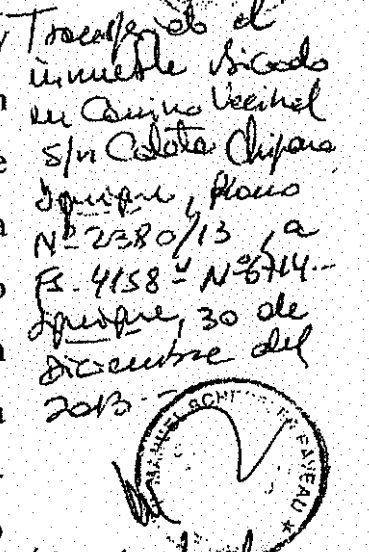 Transferido el
inmueble Vicado
en Camino Vecinal
S/n Caleta Chipana
Iquique, Plano
Nº 2380/13, a
Fs. 4158 - Nº 6714.-
Iquique, 30 de
Diciembre del
2013.-
MANUEL SCH FAVEAU